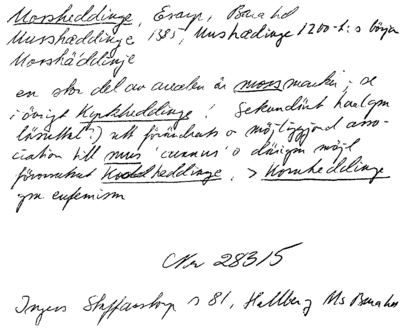 Morsheddinge, Esarp, Bara hd
Musshæddinge 1385, Mushædinge 1200-t:s början
Morshäddinje
en stor del av arealen är moss mark; se
i övrigt Kyrkheddinge! Sekundärt
(?) att förändrats o möjliggjord asso-
ciation till mus 'cunnus' o därigm möjl
förorsakat heddinge, > Kornheddinge
gm eufemism
Nr 28315
Ingers Staffanstorp s 81, Hallberg Ms Bara hd